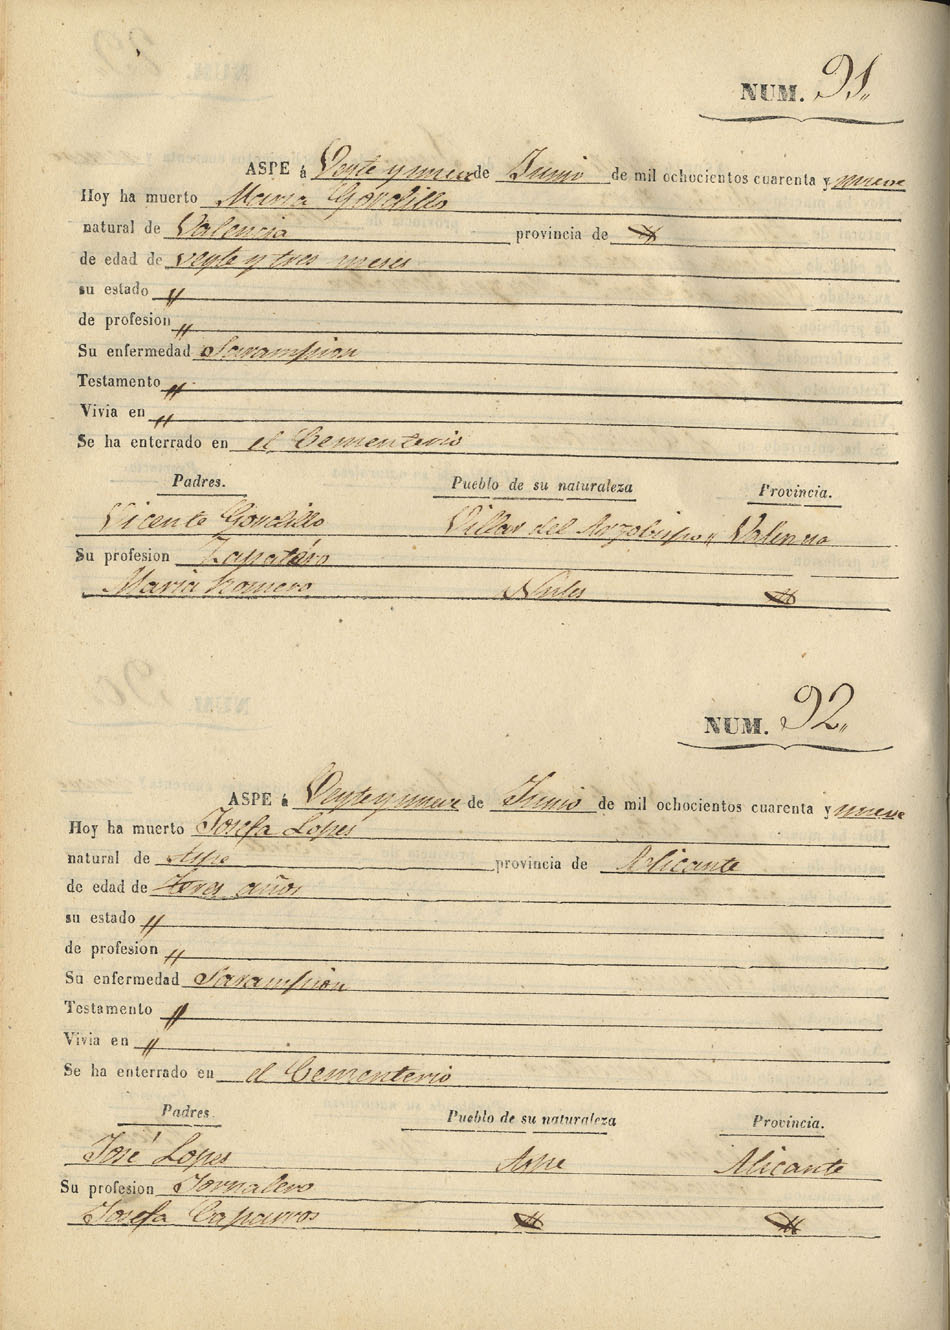 NUM. 91„
ASPE á Veyte y nueve de Junio de mil ochocientos cuarenta y nueve
Hoy ha muerto Maria Gordillo
natural de Valencia provincia de „
de edad de veyte y tres meses
su estado „
de profesion „
Su enfermedad Sarampion
Testamento „
Vivia en „
Se ha enterrado en el Cementerio
Padres. Pueblo de su naturaleza Provincia.
Vicente Gordillo Villar del Arzobispo „ Valencia
Su profesion Zapatero
Maria Romero Nules „
NUM. 92„
ASPE á Veyte y nueve de Junio de mil ochocientos cuarenta y nueve
Hoy ha muerto Josefa Lopes
natural de Aspe provincia de Alicante
de edad de tres años
su estado „
de profesion „
Su enfermedad Sarampion
Testamento „
Vivia en „
Se ha enterrado en el Cementerio
Padres. Pueblo de su naturaleza Provincia.
José Lopes Aspe Alicante
Su profesion Jornalero
Josefa Caparros „ „